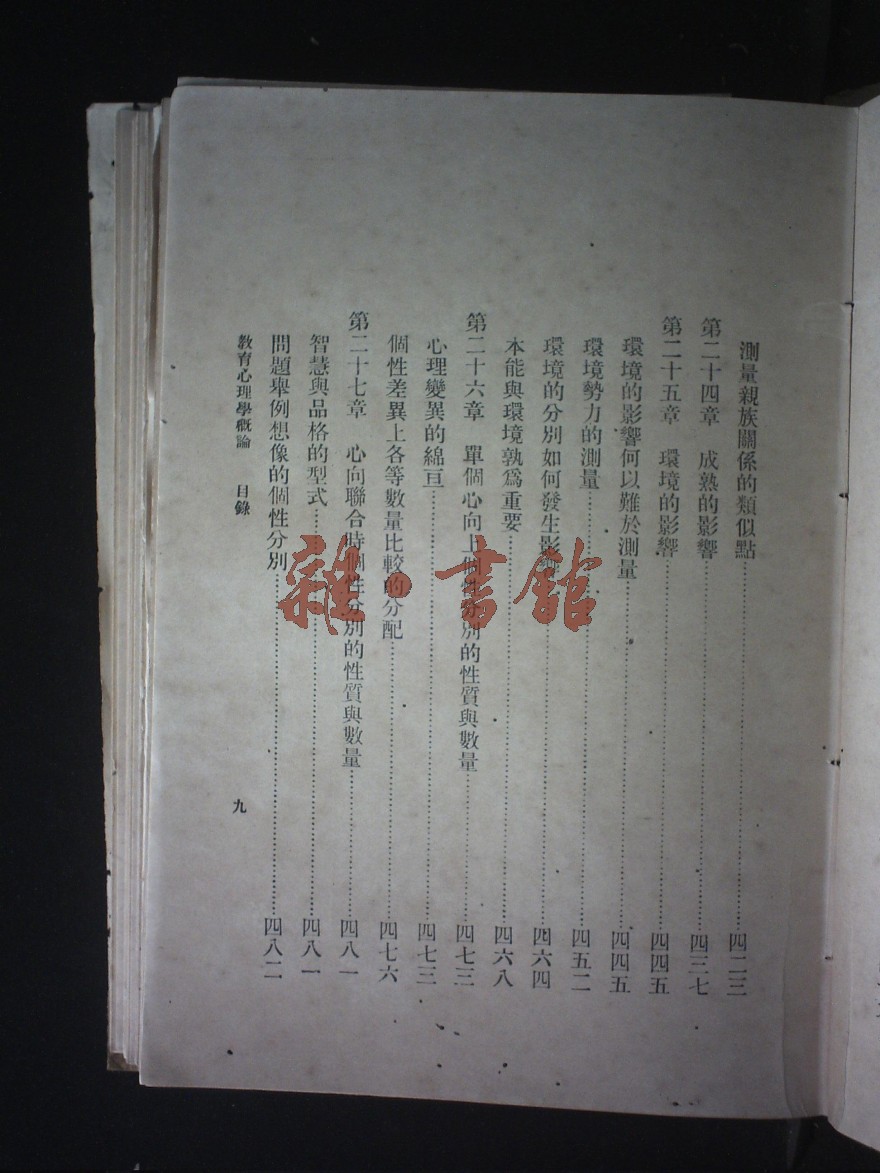 測量親族關係的類似點……四二三
第二十四章　成熟的影響……四三七
第二十五章　環境的影響……四四五
環境的影響何以難於測量……四四五
環境勢力的測量……四五二
環境的分別如何發生影響……四六四
本能與環境孰爲重要……四六八
第二十六章　單個心向上個性分別的性質與數量……四七三
心理變異的綿亘……四七三
個性差異上各等數量比較的分配……四七六
第二十七章　心向聯合時個性分別的性質與數量……四八一
智慧與品格的型式……四八一
問題舉例想像的個性分別……四八二
教育心理學概論　目錄　九
雜·書館